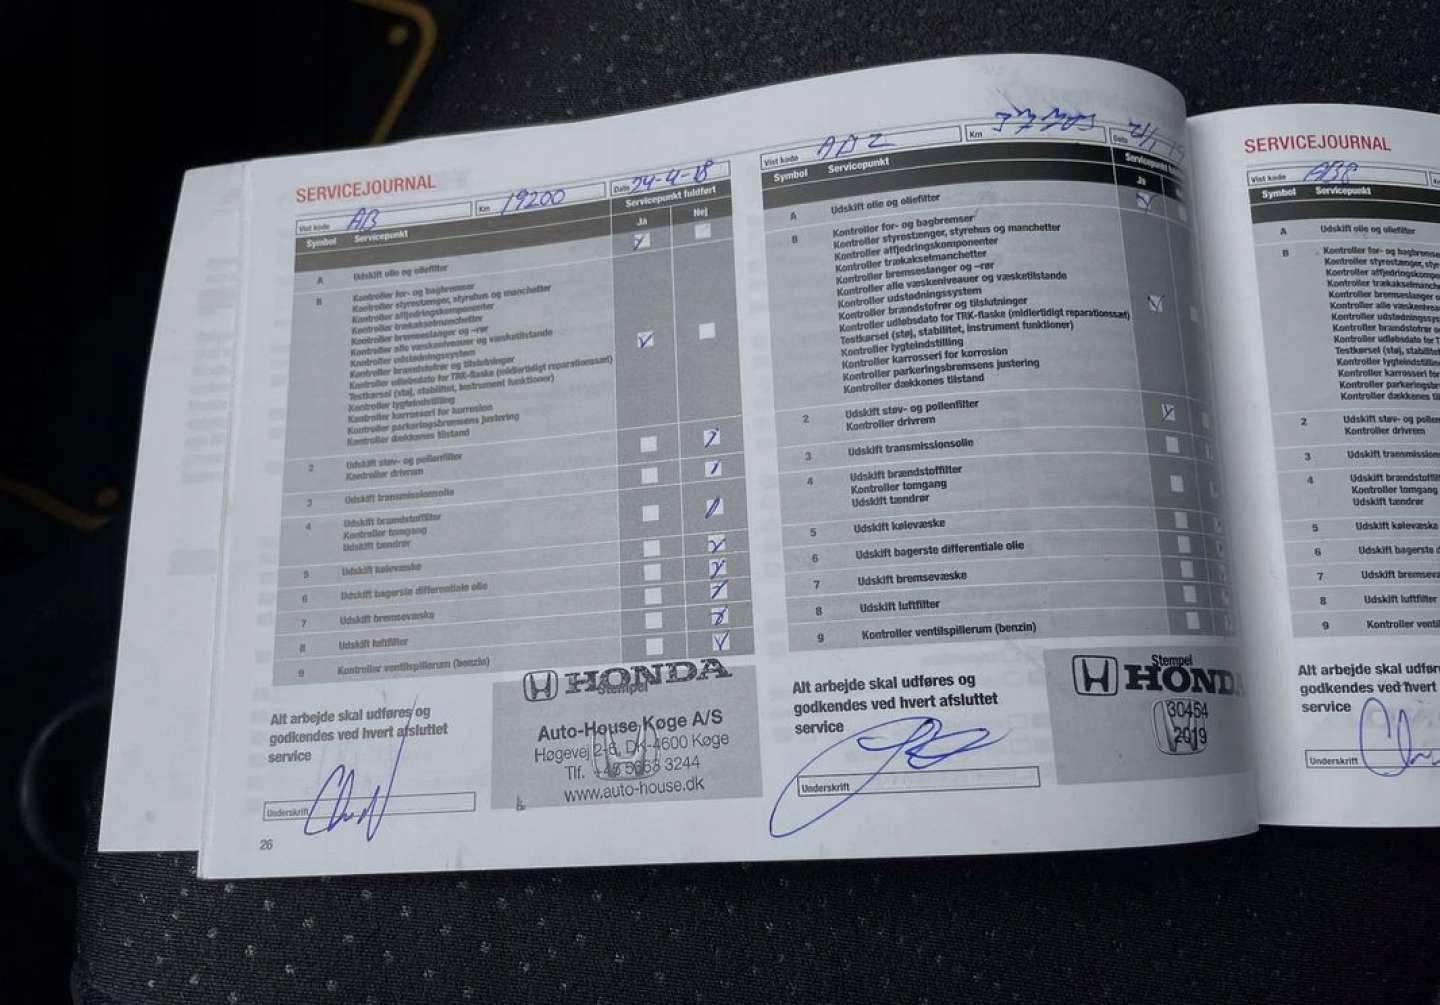 SERVICEJOURNAL
Vist kode AB Km 19200 Dato 24-4-18
Symbol Servicepunkt Servicepunkt fuldført
Ja Nej
A Udskift olie og oliefilter
B Kontroller for- og bagbremser
Kontroller styrestænger, styrehus og manchetter
Kontroller affjedringskomponenter
Kontroller trækakselmanchetter
Kontroller bremseslanger og –rør
Kontroller alle væskeniveauer og væsketilstande
Kontroller udstødningssystem
Kontroller brændstofrør og tilslutninger
Kontroller udløbsdato for TRK-flaske (midlertidigt reparationssæt)
Testkørsel (støj, stabilitet, instrument funktioner)
Kontroller lygteindstilling
Kontroller karrosseri for korrosion
Kontroller parkeringsbremsens justering
Kontroller dækkenes tilstand
2 Udskift støv- og pollenfilter
Kontroller drivrem
3 Udskift transmissionsolie
4 Udskift brændstoffilter
Kontroller tomgang
Udskift tændrør
5 Udskift kølevæske
6 Udskift bagerste differentiale olie
7 Udskift bremsevæske
8 Udskift luftfilter
9 Kontroller ventilspillerum (benzin)
Alt arbejde skal udføres og
godkendes ved hvert afsluttet
service
Underskrift
HONDA
Stempel
Auto-House Køge A/S
Høgevej 2-6, DK-4600 Køge
Tlf. +45 5663 3244
www.auto-house.dk
26
Vist kode Km Dato
Symbol Servicepunkt Servicepunkt
Ja
A Udskift olie og oliefilter
B Kontroller for- og bagbremser
Kontroller styrestænger, styrehus og manchetter
Kontroller affjedringskomponenter
Kontroller trækakselmanchetter
Kontroller bremseslanger og –rør
Kontroller alle væskeniveauer og væsketilstande
Kontroller udstødningssystem
Kontroller brændstofrør og tilslutninger
Kontroller udløbsdato for TRK-flaske (midlertidigt reparationssæt)
Testkørsel (støj, stabilitet, instrument funktioner)
Kontroller lygteindstilling
Kontroller karrosseri for korrosion
Kontroller parkeringsbremsens justering
Kontroller dækkenes tilstand
2 Udskift støv- og pollenfilter
Kontroller drivrem
3 Udskift transmissionsolie
4 Udskift brændstoffilter
Kontroller tomgang
Udskift tændrør
5 Udskift kølevæske
6 Udskift bagerste differentiale olie
7 Udskift bremsevæske
8 Udskift luftfilter
9 Kontroller ventilspillerum (benzin)
Alt arbejde skal udføres og
godkendes ved hvert afsluttet
service
Underskrift
Stempel
HONDA
30454
2019
SERVICEJOURNAL
Vist kode
Symbol Servicepunkt
A Udskift olie og oliefilter
B Kontroller for- og bagbremse
Kontroller styrestænger, styre
Kontroller affjedringskompone
Kontroller trækakselmanche
Kontroller bremseslanger o
Kontroller alle væskenivea
Kontroller udstødningssys
Kontroller brændstofrør o
Kontroller udløbsdato for T
Testkørsel (støj, stabilitet
Kontroller lygteindstilling
Kontroller karrosseri for
Kontroller parkeringsbre
Kontroller dækkenes til
2 Udskift støv- og pollen
Kontroller drivrem
3 Udskift transmissions
4 Udskift brændstoffil
Kontroller tomgang
Udskift tændrør
5 Udskift kølevæske
6 Udskift bagerste d
7 Udskift bremsevæ
8 Udskift luftfilter
9 Kontroller ventil
Alt arbejde skal udfør
godkendes ved hvert
service
Underskrift